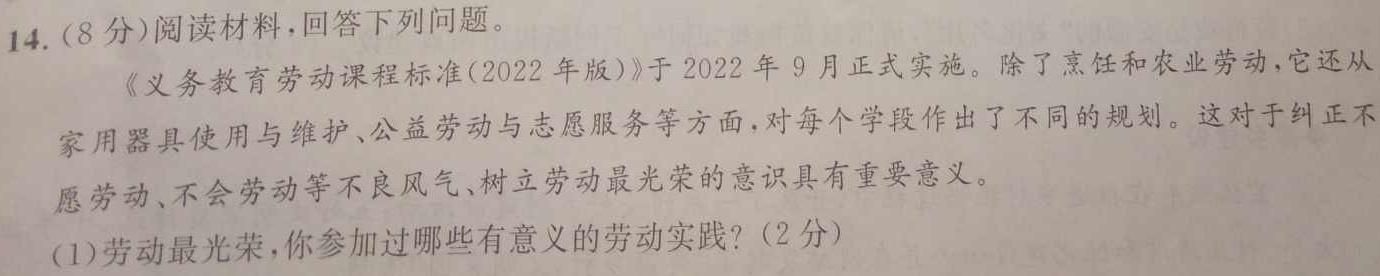 14.(8分)阅读材料,回答下列问题。
《义务教育劳动课程标准(2022年版)》于2022年9月正式实施。除了烹饪和农业劳动,它还从
家用器具使用与维护、公益劳动与志愿服务等方面,对每个学段作出了不同的规划。这对于纠正不
愿劳动、不会劳动等不良风气、树立劳动最光荣的意识具有重要意义。
(1)劳动最光荣,你参加过哪些有意义的劳动实践?(2分)